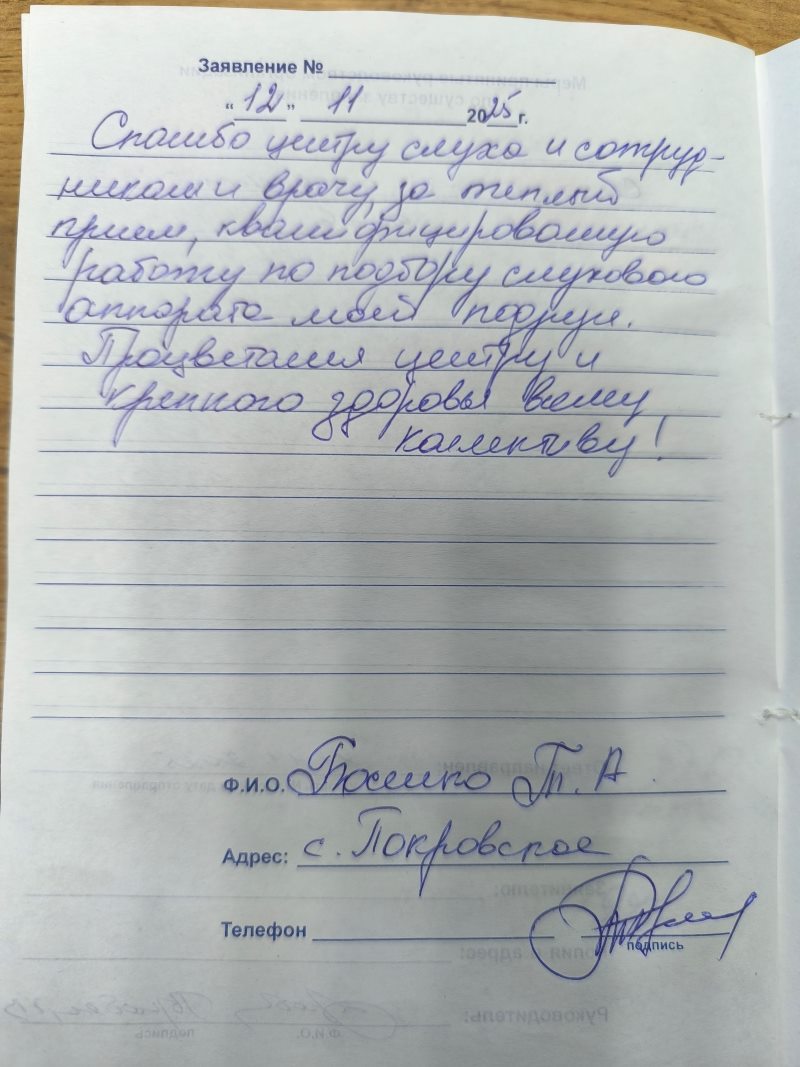 Заявление №
"12" 11 2025 г.
Спасибо центру слуха и сотруд-
никам и врачу за теплый
прием, квалифицированную
работу по подбору слухового
аппарата моей подруги.
Процветания центру и
крепкого здоровья всему
коллективу!
Ф.И.О. Т.А.
Адрес: с. Покровское
Телефон
подпись